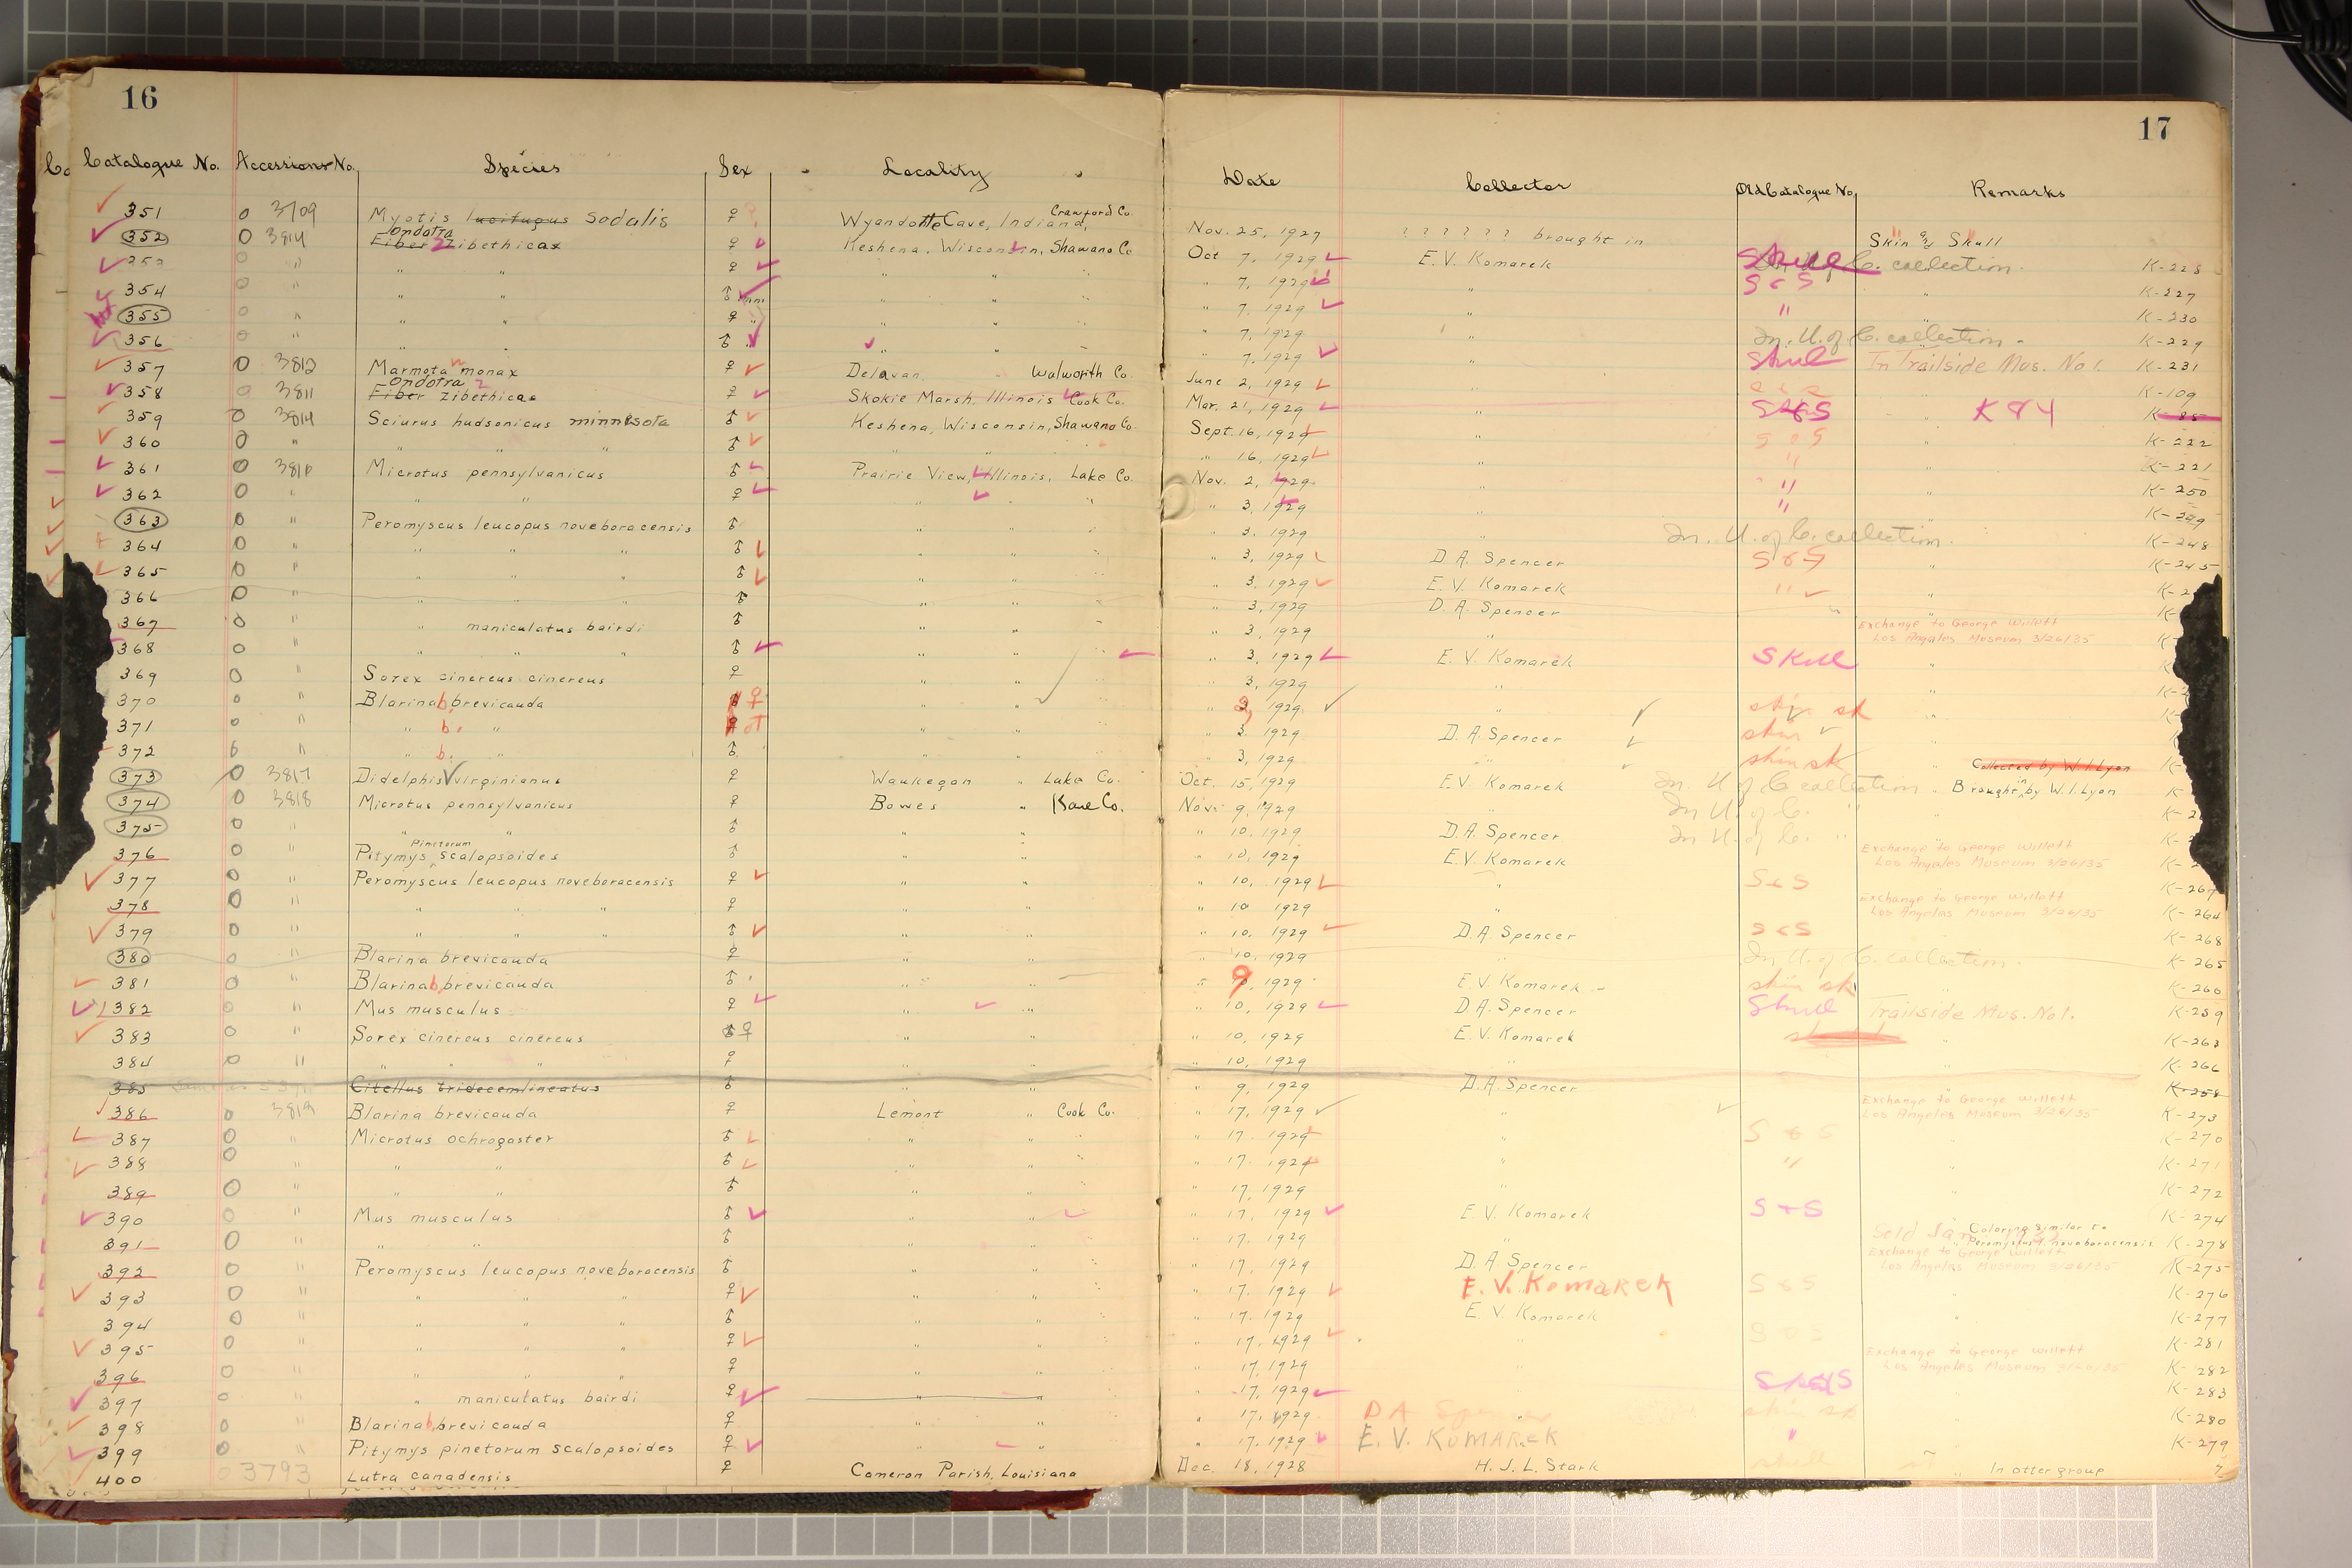 16
17
Catalogue No. Accessions No. Species Sex Locality Date Collector Old Catalogue No. Remarks
351 O 3709 Myotis lucifugus sodalis ♀ Wyandotte Cave, Indiana, Crawford Co. Nov. 25, 1927 ? ? ? ? ? ? brought in Skin and Skull
352 O 3814 Fiber Ondatra zibethicas ♀ Keshena, Wisconsin, Shawano Co Oct 7, 1929 E. V. Komarek Skull In U. of C. collection. K-228
353 O " " " ♀ " " " 7, 1929 " S & S " K-227
354 O " " " ♂ " " " 7, 1929 " " " K-230
355 O " " " ♀ " " " 7, 1929 " In U. of C. collection. K-229
356 O " " " ♂ " " " 7, 1929 " Skull In Trailside Mus. No 1. K-231
357 O 3812 Marmota m monax ♀ Delavan, Walworth Co. June 2, 1929 " K-109
358 O 3811 Fiber Ondatra zibethicas ♀ Skokie Marsh, Illinois Cook Co. Mar. 21, 1929 " S & S " K 84 K-85
359 O 3814 Sciurus hudsonicus minnesota ♂ Keshena, Wisconsin, Shawano Co. Sept. 16, 1929 " S & S " K-222
360 O " " " ♂ " " " 16, 1929 " " " K-221
361 O 3816 Microtus pennsylvanicus ♂ Prairie View, Illinois, Lake Co. Nov. 2, 1929 " " " K-250
362 O " " " ♀ " " " 3, 1929 " " " K-249
363 O " Peromyscus leucopus noveboracensis ♂ " " " 3, 1929 " In U. of C. collection. K-248
364 O " " " " ♂ " " " 3, 1929 D. A. Spencer S & S " K-245
365 O " " " " ♂ " " " 3, 1929 E. V. Komarek " "
366 O " " " " ♂ " " " 3, 1929 D. A. Spencer "
367 O " " maniculatus bairdi ♂ " " " 3, 1929 " Exchange to George Willett Los Angeles Museum 3/26/35
368 O " " " " ♂ " " " 3, 1929 E. V. Komarek Skull "
369 O " Sorex cinereus cinereus ♀ " " " 3, 1929 " "
370 O " Blarina b. brevicauda ♀ " " " 3, 1929 " skin sk "
371 O " " b. " ♂ " " " 3, 1929 D. A. Spencer skin "
372 O " " b. " ♂ " " " 3, 1929 " skin sk Collected by W. I. Lyon
373 O 3817 Didelphis virginianus ♀ Waukegan " Lake Co. Oct. 15, 1929 E.V. Komarek In U of C collection " Brought in by W. I. Lyon
374 O 3818 Microtus pennsylvanicus ♀ Bowes " Kane Co. Nov. 9, 1929 " In U. of C. "
375 O " " " ♂ " " " 10, 1929 D. A. Spencer In U. of C. "
376 O " Pitymys pinetorum scalopsoides ♂ " " " 10, 1929 E.V. Komarek Exchange to George Willett Los Angeles Museum 3/26/35
377 O " Peromyscus leucopus noveboracensis ♀ " " " 10, 1929 " S & S K-267
378 O " " " " ♀ " " " 10 1929 " Exchange to George Willett Los Angeles Museum 3/26/35 K-264
379 O " " " " ♂ " " " 10, 1929 D. A. Spencer S & S K-268
380 O " Blarina brevicauda ♀ " " " 10, 1929 " In U. of C. collection. K-265
381 O " Blarina b. brevicauda ♂ " " " 9, 1929 E. V. Komarek skin sk K-260
382 O " Mus musculus ♀ " " " 10, 1929 D. A. Spencer Skull Trailside Mus. No 1. K-259
383 O " Sorex cinereus cinereus ♂ ♀ " " " 10, 1929 E. V. Komarek " K-263
384 O " " " " ♀ " " " 10, 1929 " " K-266
385 Citellus tridecemlineatus ♂ " " " 9, 1929 D. A. Spencer K-258
386 O 3819 Blarina brevicauda ♀ Lemont " Cook Co. " 17, 1929 " Exchange to George Willett Los Angeles Museum 3/26/35 K-273
387 O " Microtus ochrogaster ♂ " " " 17, 1929 " S & S " K-270
388 O " " " ♂ " " " 17, 1929 " " " K-271
389 O " " " ♂ " " " 17, 1929 " " K-272
390 O " Mus musculus ♂ " " " 17, 1929 E. V. Komarek S & S " K-274
391 O " " " ♂ " " " 17, 1929 " Sold Coloring similar to Peromyscus l. noveboracensis K-278
392 O " Peromyscus leucopus noveboracensis ♂ " " " 17, 1929 D. A. Spencer Exchange to George Willett Los Angeles Museum 3/26/35 K-275
393 O " " " " ♀ " " " 17, 1929 E. V. Komarek S & S " K-276
394 O " " " " ♂ " " " 17, 1929 E. V. Komarek " K-277
395 O " " " " ♀ " " " 17, 1929 " S & S K-281
396 O " " " " ♀ " " " 17, 1929 " Exchange to George Willett Los Angeles Museum 3/26/35 K-282
397 O " " maniculatus bairdi ♀ " " " 17, 1929 " S & S " K-283
398 O " Blarina b. brevicauda ♀ " " " 17, 1929 D A Spencer skin sk " K-280
399 O " Pitymys pinetorum scalopsoides ♀ " " " 17, 1929 E. V. KOMAREK " " K-279
400 O 3793 Lutra canadensis ♀ Cameron Parish, Louisiana Dec. 18, 1928 H. J. L. Stark skull " In otter group ?